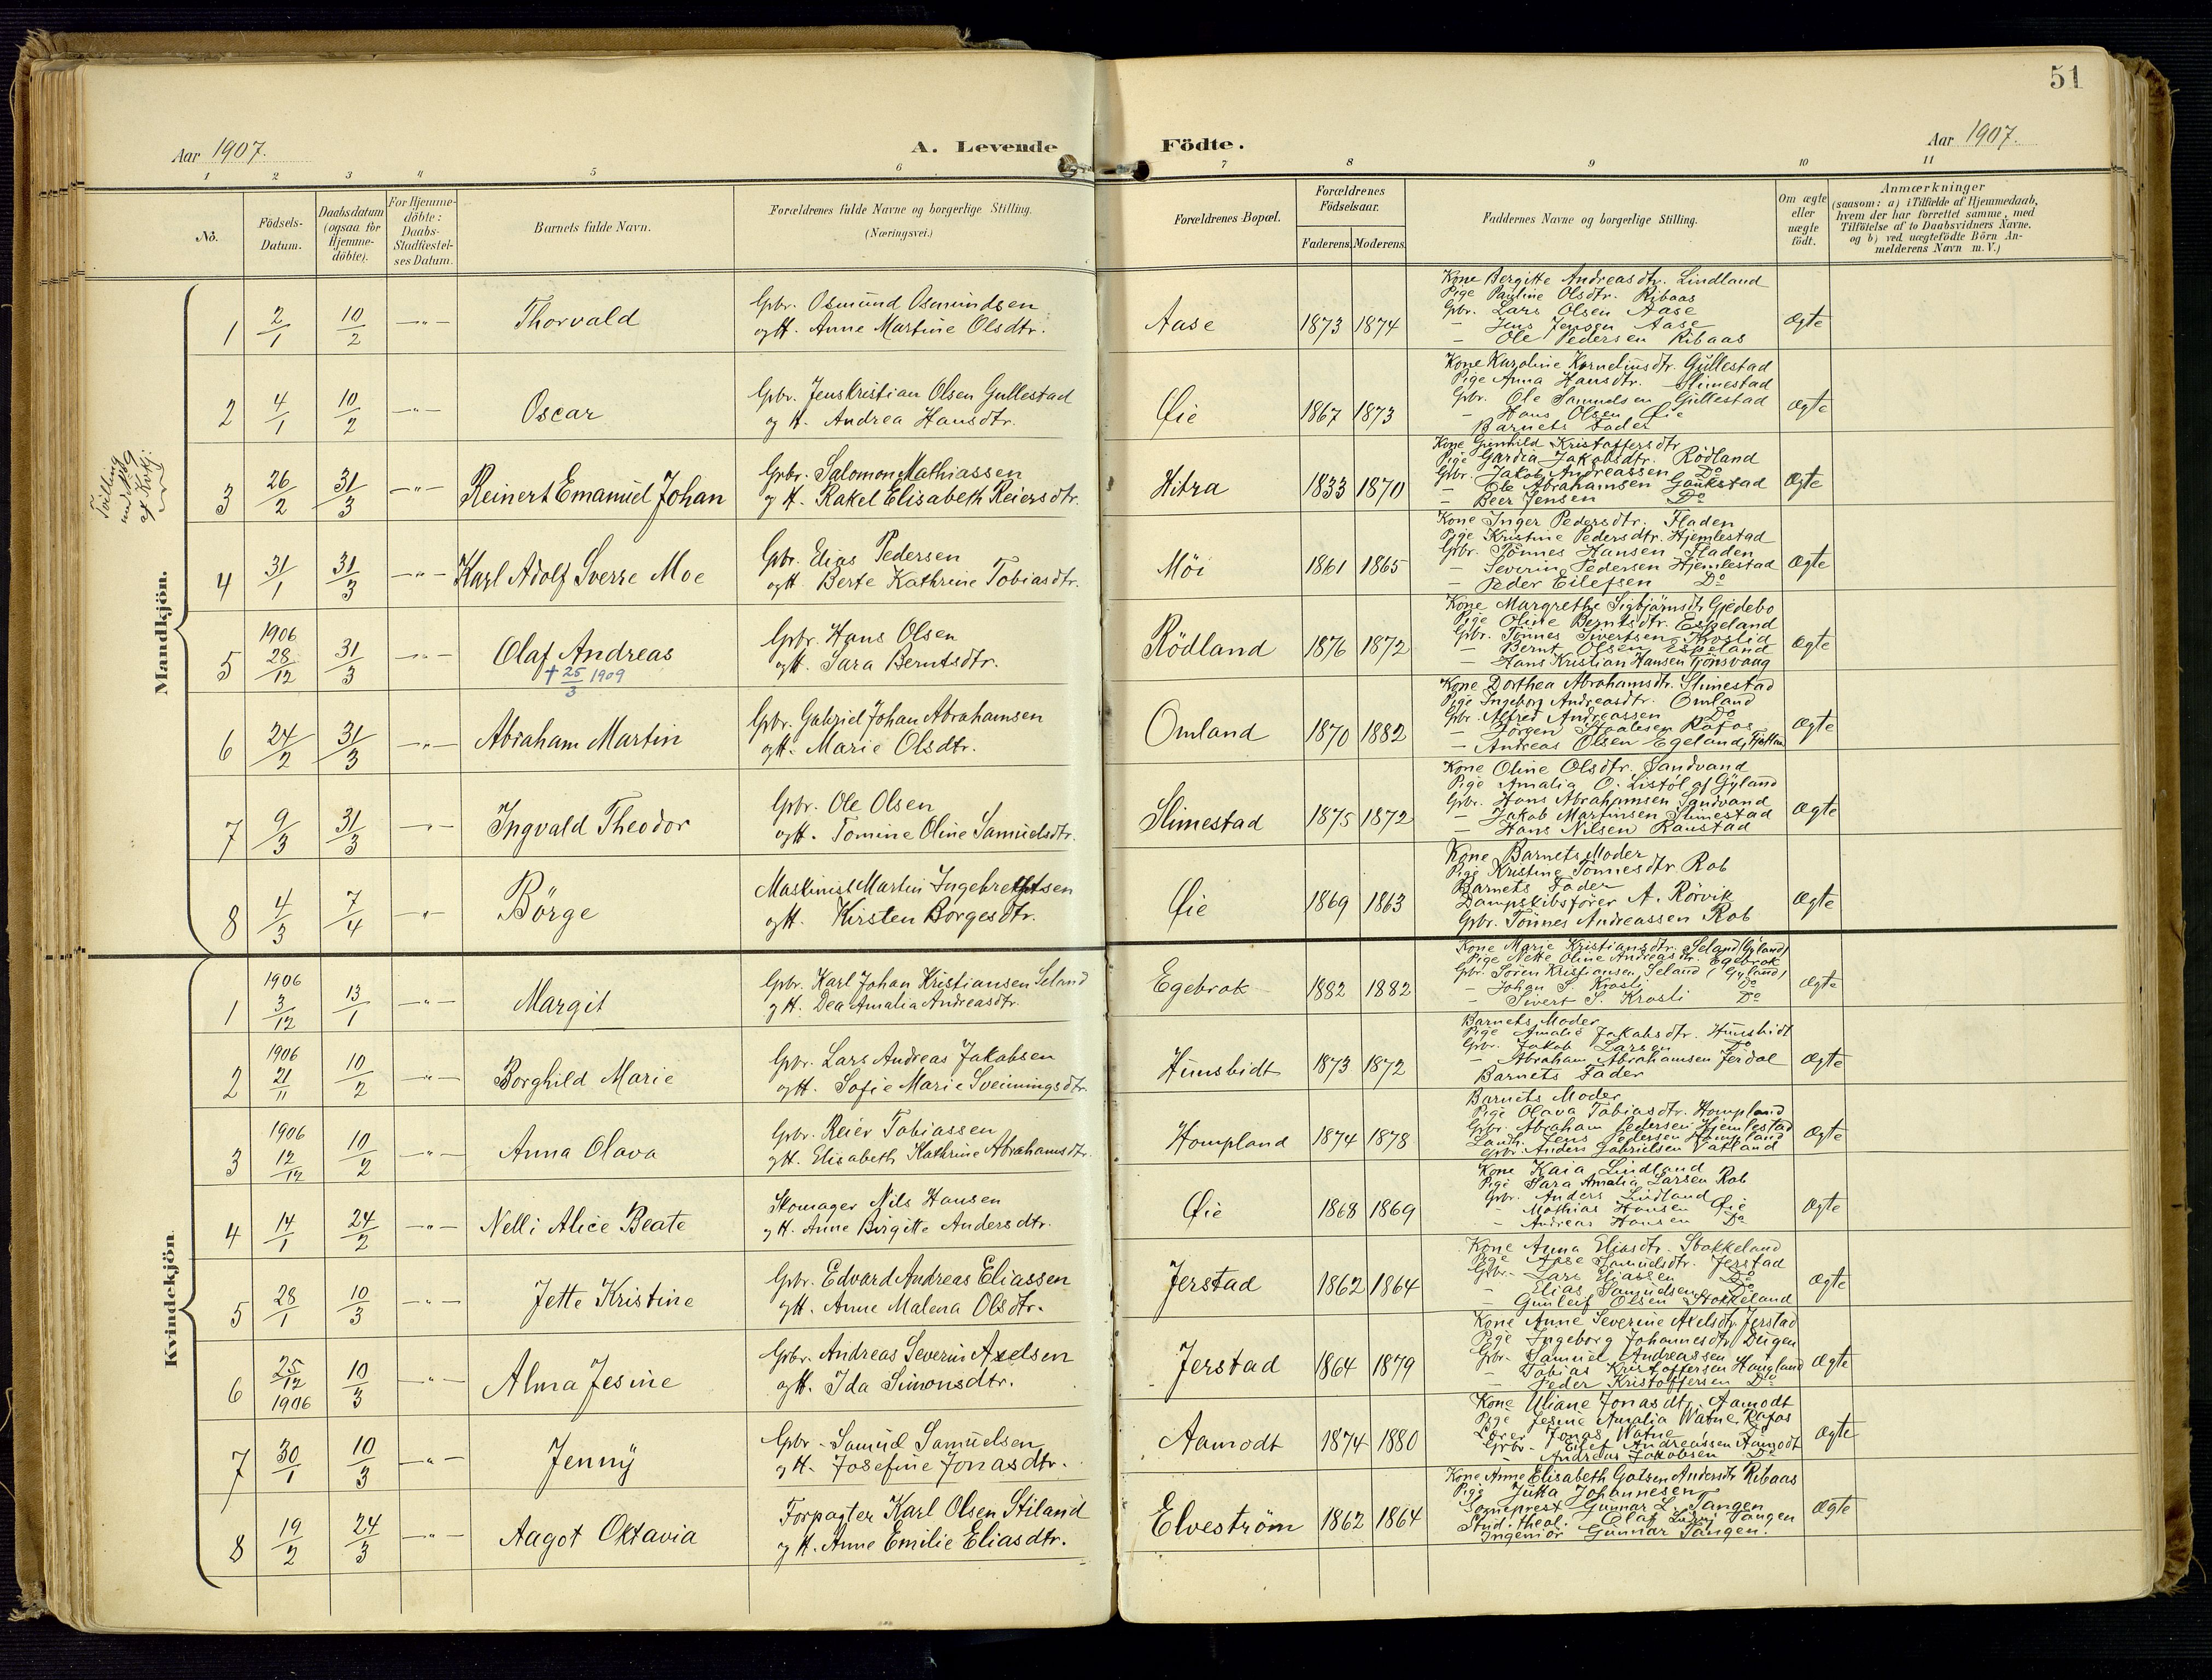 51
Aar 1907.
A. Levende
Födte.
Aar 1907.
1 2 3 4 5 6 7 8 9 10 11
No.
Födsels-Datum.
Daabsdatum (ogsaa for Hjemme-döbte).
For Hjemme-döbte: Daabs-Stadfæstel-ses Datum.
Barnets fulde Navn.
Forældrenes fulde Navne og borgerlige Stilling.
(Næringsvei.)
Forældrenes Bopæl.
Forældrenes Födselsaar.
Faderens. Moderens.
Faddernes Navne og borgerlige Stilling.
Om ægte eller uægte födt.
Anmærkninger
(saasom: a) i Tilfælde af Hjemmedaab,
hvem der har forrettet samme, med
Tilföielse af to Daabsvidners Navne,
og b) ved uægtefödte Börn An-
melderens Navn m. V.)
Mandkjön.
Tvilling
1 2/1 10/2 —"— Thorvald
Gbr. Osmund Osmundsen
og H. Anne Martine Olsdtr.
Aase 1873 1874
Kone Bergitte Andreasdtr. Lindland
Pige Pauline Olsdtr. Ribaas
Gbr. Lars Olsen Aase
— Jens Jensen Aase
— Ole Pedersen Ribaas
Ægte
2 4/1 10/2 —"— Oscar
Gbr. Jens Kristian Olsen Gullestad
og H. Andrea Hansdtr.
Øie 1867 1873
Kone Karoline Korneliusdtr. Gullestad
Pige Anna Hansdtr. Slimestad
Gbr. Ole Samuelsen Gullestad
— Hans Olsen Øie
Barnets Fader
Ægte
3 26/2 31/3 —"— Reinert Emanuel Johan
Gbr. Salomon Mathiassen
og H. Rakel Elisabeth Reiersdtr.
Hitra 1833 1870
Kone Gunhild Kristoffersdtr
Pige Gardia Jakobsdtr. Rödland
Gbr. Jakob Andreassen Do
— Ole Abrahamsen Gaukstad
— Beer Jensen Do
Ægte
4 31/1 31/3 —"— Karl Adolf Sverre Moe
Gbr. Elias Pedersen
og H. Berte Kathrine Tobiasdtr.
Möi 1861 1865
Kone Inger Pedersdtr. Fladen
Pige Kristine Pedersdtr. Hjemlestad
Gbr. Tönnes Hansen Fladen
— Severin Pedersen Hjemlestad
— Peder Eilefsen Do
Ægte
5 1906 28/12 31/3 —"— Olaf Andreas
† 25/3 1909
Gbr. Hans Olsen
og H. Sara Berntsdtr.
Rödland 1876 1872
Kone Margrethe Sigbjörnsdtr. Gjedebo
Pige Oline Berntsdtr. Espeland
Gbr. Tönnes Sivertsen Kroslid
— Bernt Olsen Espeland
— Hans Kristian Hansen Tjönsvaag
Ægte
6 24/2 31/3 —"— Abraham Martin
Gbr. Gabriel Johan Abrahamsen
og H. Marie Olsdtr.
Omland 1870 1882
Kone Dorthea Abrahamsdtr. Slimestad
Pige Ingeborg Andreasdtr. Omland
Gbr. Alfred Andreassen Do
— Jörgen Staalesen Rafos
— Andreas Olsen Egeland,
Ægte
7 9/3 31/3 —"— Ingvald Theodor
Gbr. Ole Olsen
og H. Tomine Oline Samuelsdtr.
Slimestad 1875 1872
Kone Oline Olsdtr. Sandvand
Pige Amalia O. Listöl af Gyland
Gbr. Hans Abrahamsen Sandvand
— Jakob Martinsen Slimestad
— Hans Nilsen Raustad
Ægte
8 4/3 7/4 —"— Börge
Maskinist Martin Ingebretsen
og H. Kirsten Börgesdtr.
Øie 1869 1863
Kone Barnets Moder
Pige Kristine Tönnesdtr. Rob
Barnets Fader
Dampskibsförer A. Rörvik
Gbr. Tönnes Andreassen Rob
Ægte
Kvindekjön.
1 1906 3/12 13/1 —"— Margit
Gbr. Karl Johan Kristiansen Seland
og H. Dea Amalia Andreasdtr.
Egebrok 1882 1882
Kone Marie Kristiansdtr. Seland (Gyland)
Pige Nette Oline Andreasdtr. Egebrok
Gbr. Sören Kristiansen Seland (Gyland)
— Johan S. Krosli Do
— Sivert S. Krosli Do
Ægte
2 1906 21/11 10/2 —"— Borghild Marie
Gbr. Lars Andreas Jakobsen
og H. Sofie Marie Sveinungsdtr.
Hunsbidt 1873 1872
Barnets Moder
Pige Amalie Jakobsdtr. Hunsbidt
Gbr. Jakob Larsen Do
— Abraham Abrahamsen Jerdal
Barnets Fader
Ægte
3 1906 12/12 10/2 —"— Anna Olava
Gbr. Reier Tobiassen
og H. Elisabeth Kathrine Abrahamsdtr.
Hompland 1874 1878
Barnets Moder
Pige Olava Tobiasdtr. Hompland
Gbr. Abraham Pedersen Hjemlestad
Landh. Jens Pedersen Hompland
Gbr. Anders Gabrielsen Vatland
Ægte
4 14/1 24/2 —"— Nelli Alice Beate
Skomager Nils Hansen
og H. Anne Birgitte Andersdtr.
Øie 1868 1869
Kone Kaia Lindland
Pige Sara Amalia Larsen Rob
Gbr. Anders Lindland
— Mathias Hansen Øie
— Andreas Hansen Do
Ægte
5 28/1 10/3 —"— Jette Kristine
Gbr. Edvard Andreas Eliassen
og H. Anne Malena Olsdtr.
Jerstad 1862 1864
Kone Anna Eliasdtr. Stokkeland
Pige Aase Samuelsdtr. Jerstad
Gbr. Lars Eliassen Do
— Elias Samuelsen Do
— Gunleif Olsen Stokkeland
Ægte
6 25/12 1906 10/3 —"— Alma Jesine
Gbr. Andreas Severin Axelsen
og H. Ida Simonsdtr.
Jerstad 1864 1879
Kone Anne Severine Axelsdtr. Jerstad
Pige Ingeborg Johannesdtr. Deigen
Gbr. Samuel Andreassen
— Tobias Kristoffersen Haugland
— Peder Kristoffersen Do
Ægte
7 30/1 10/3 —"— Jenny
Gbr. Samuel Samuelsen
og H. Josefine Jonasdtr.
Aamodt 1874 1880
Kone Uliane Jonasdtr. Aamodt
Pige Jesine Amalia Watne, Rafos
Lærer Jonas Watne Do
Gbr. Eilef Andreassen Aamodt
— Andreas Jakobsen Do
Ægte
8 19/2 24/3 —"— Aagot Oktavia
Forpagter Karl Olsen Stiland
og H. Anne Emilie Eliasdtr.
Elveström 1862 1864
Kone Anne Elisabeth Andersdtr Ribaas
Pige Jutta Johannesen
Sogneprest Gunnar L. Tangen
Stud. theol. Olaf Tangen
Ingeniör Gunnar Tangen.
Ægte